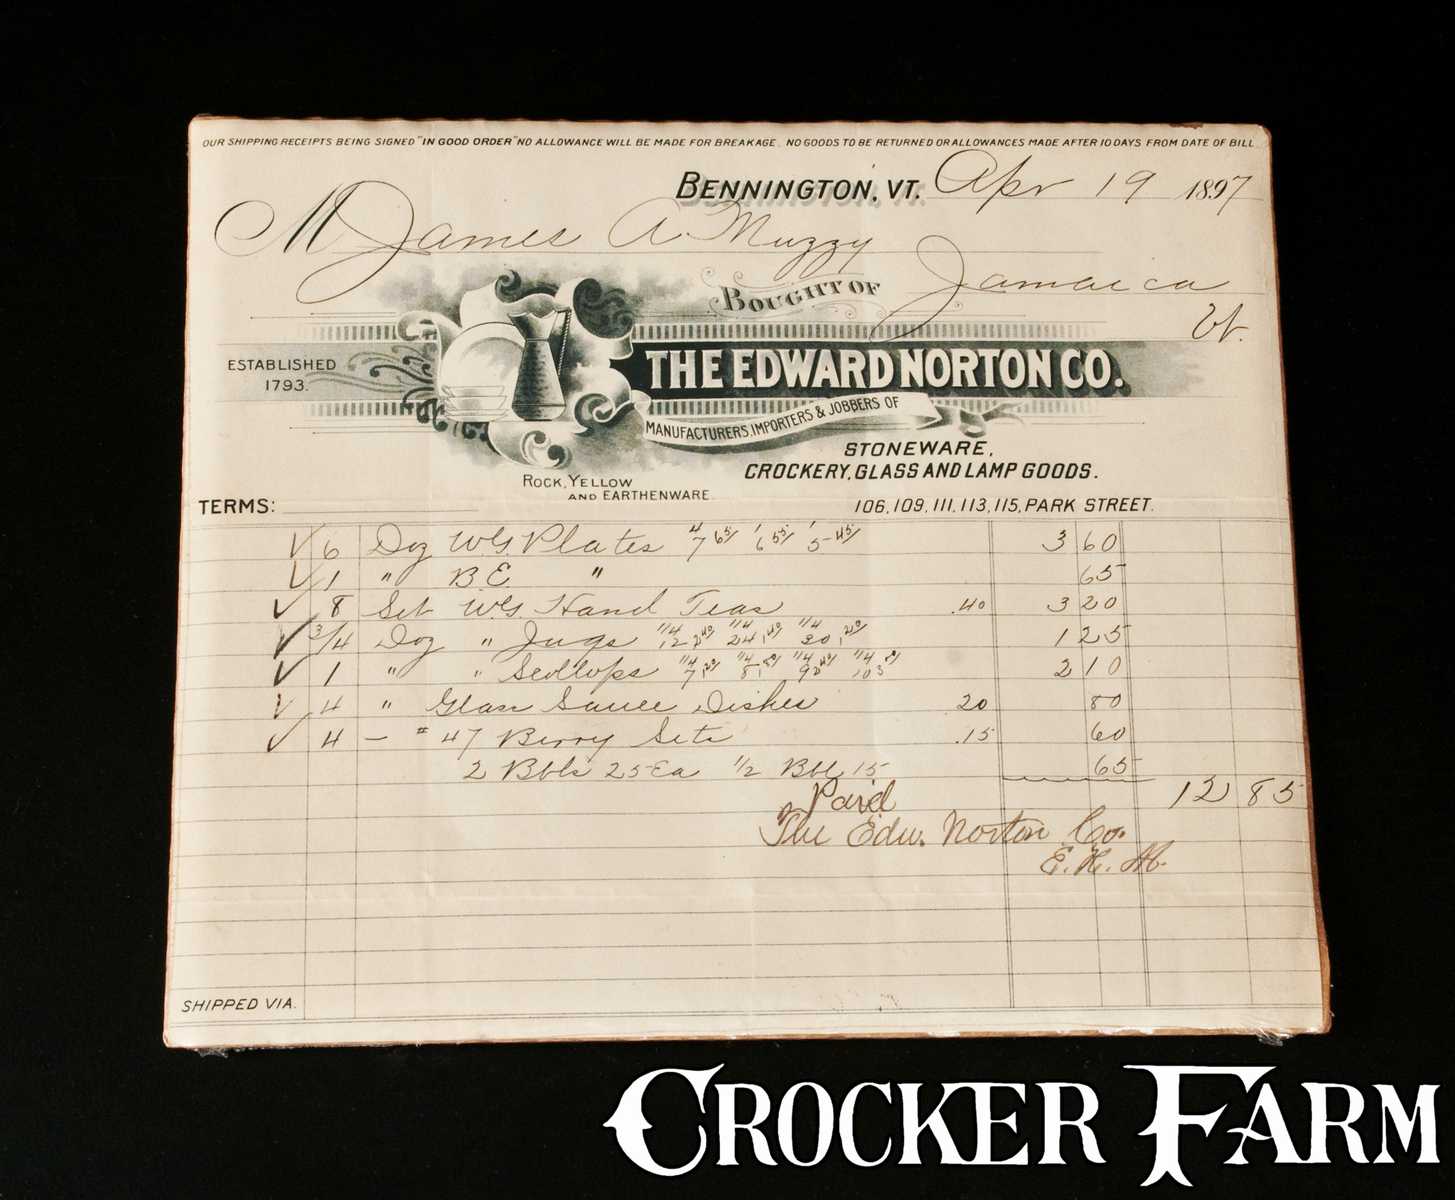 OUR SHIPPING RECEIPTS BEING SIGNED "IN GOOD ORDER" NO ALLOWANCE WILL BE MADE FOR BREAKAGE. NO GOODS TO BE RETURNED OR ALLOWANCES MADE AFTER 10 DAYS FROM DATE OF BILL.
BENNINGTON, VT. Apr 19 1897
M James A Muzzy
Jamaica
Vt.
BOUGHT OF
ESTABLISHED
1793.
THE EDWARD NORTON CO.
MANUFACTURERS, IMPORTERS & JOBBERS OF
STONEWARE,
CROCKERY, GLASS AND LAMP GOODS.
ROCK, YELLOW
AND EARTHENWARE.
TERMS:
106, 109, 111, 113, 115, PARK STREET.
6 Doz W.G. Plates 4/7 65/ 1/6 55/ 1/5 45/ 3 60
1 " B.E. " 65
8 Set W.G. Hand Teas .40 3 20
3/4 Doz " Jugs 1 25
1 " " Scollops 2 10
4 " Glass Sauce Dishes 20 80
4 — # 47 Berry Sets .15 60
2 Bbls 25 Ea 1/2 Bbl 15 65
12 85
Paid
The Edw. Norton Co.
SHIPPED VIA.
CROCKER FARM